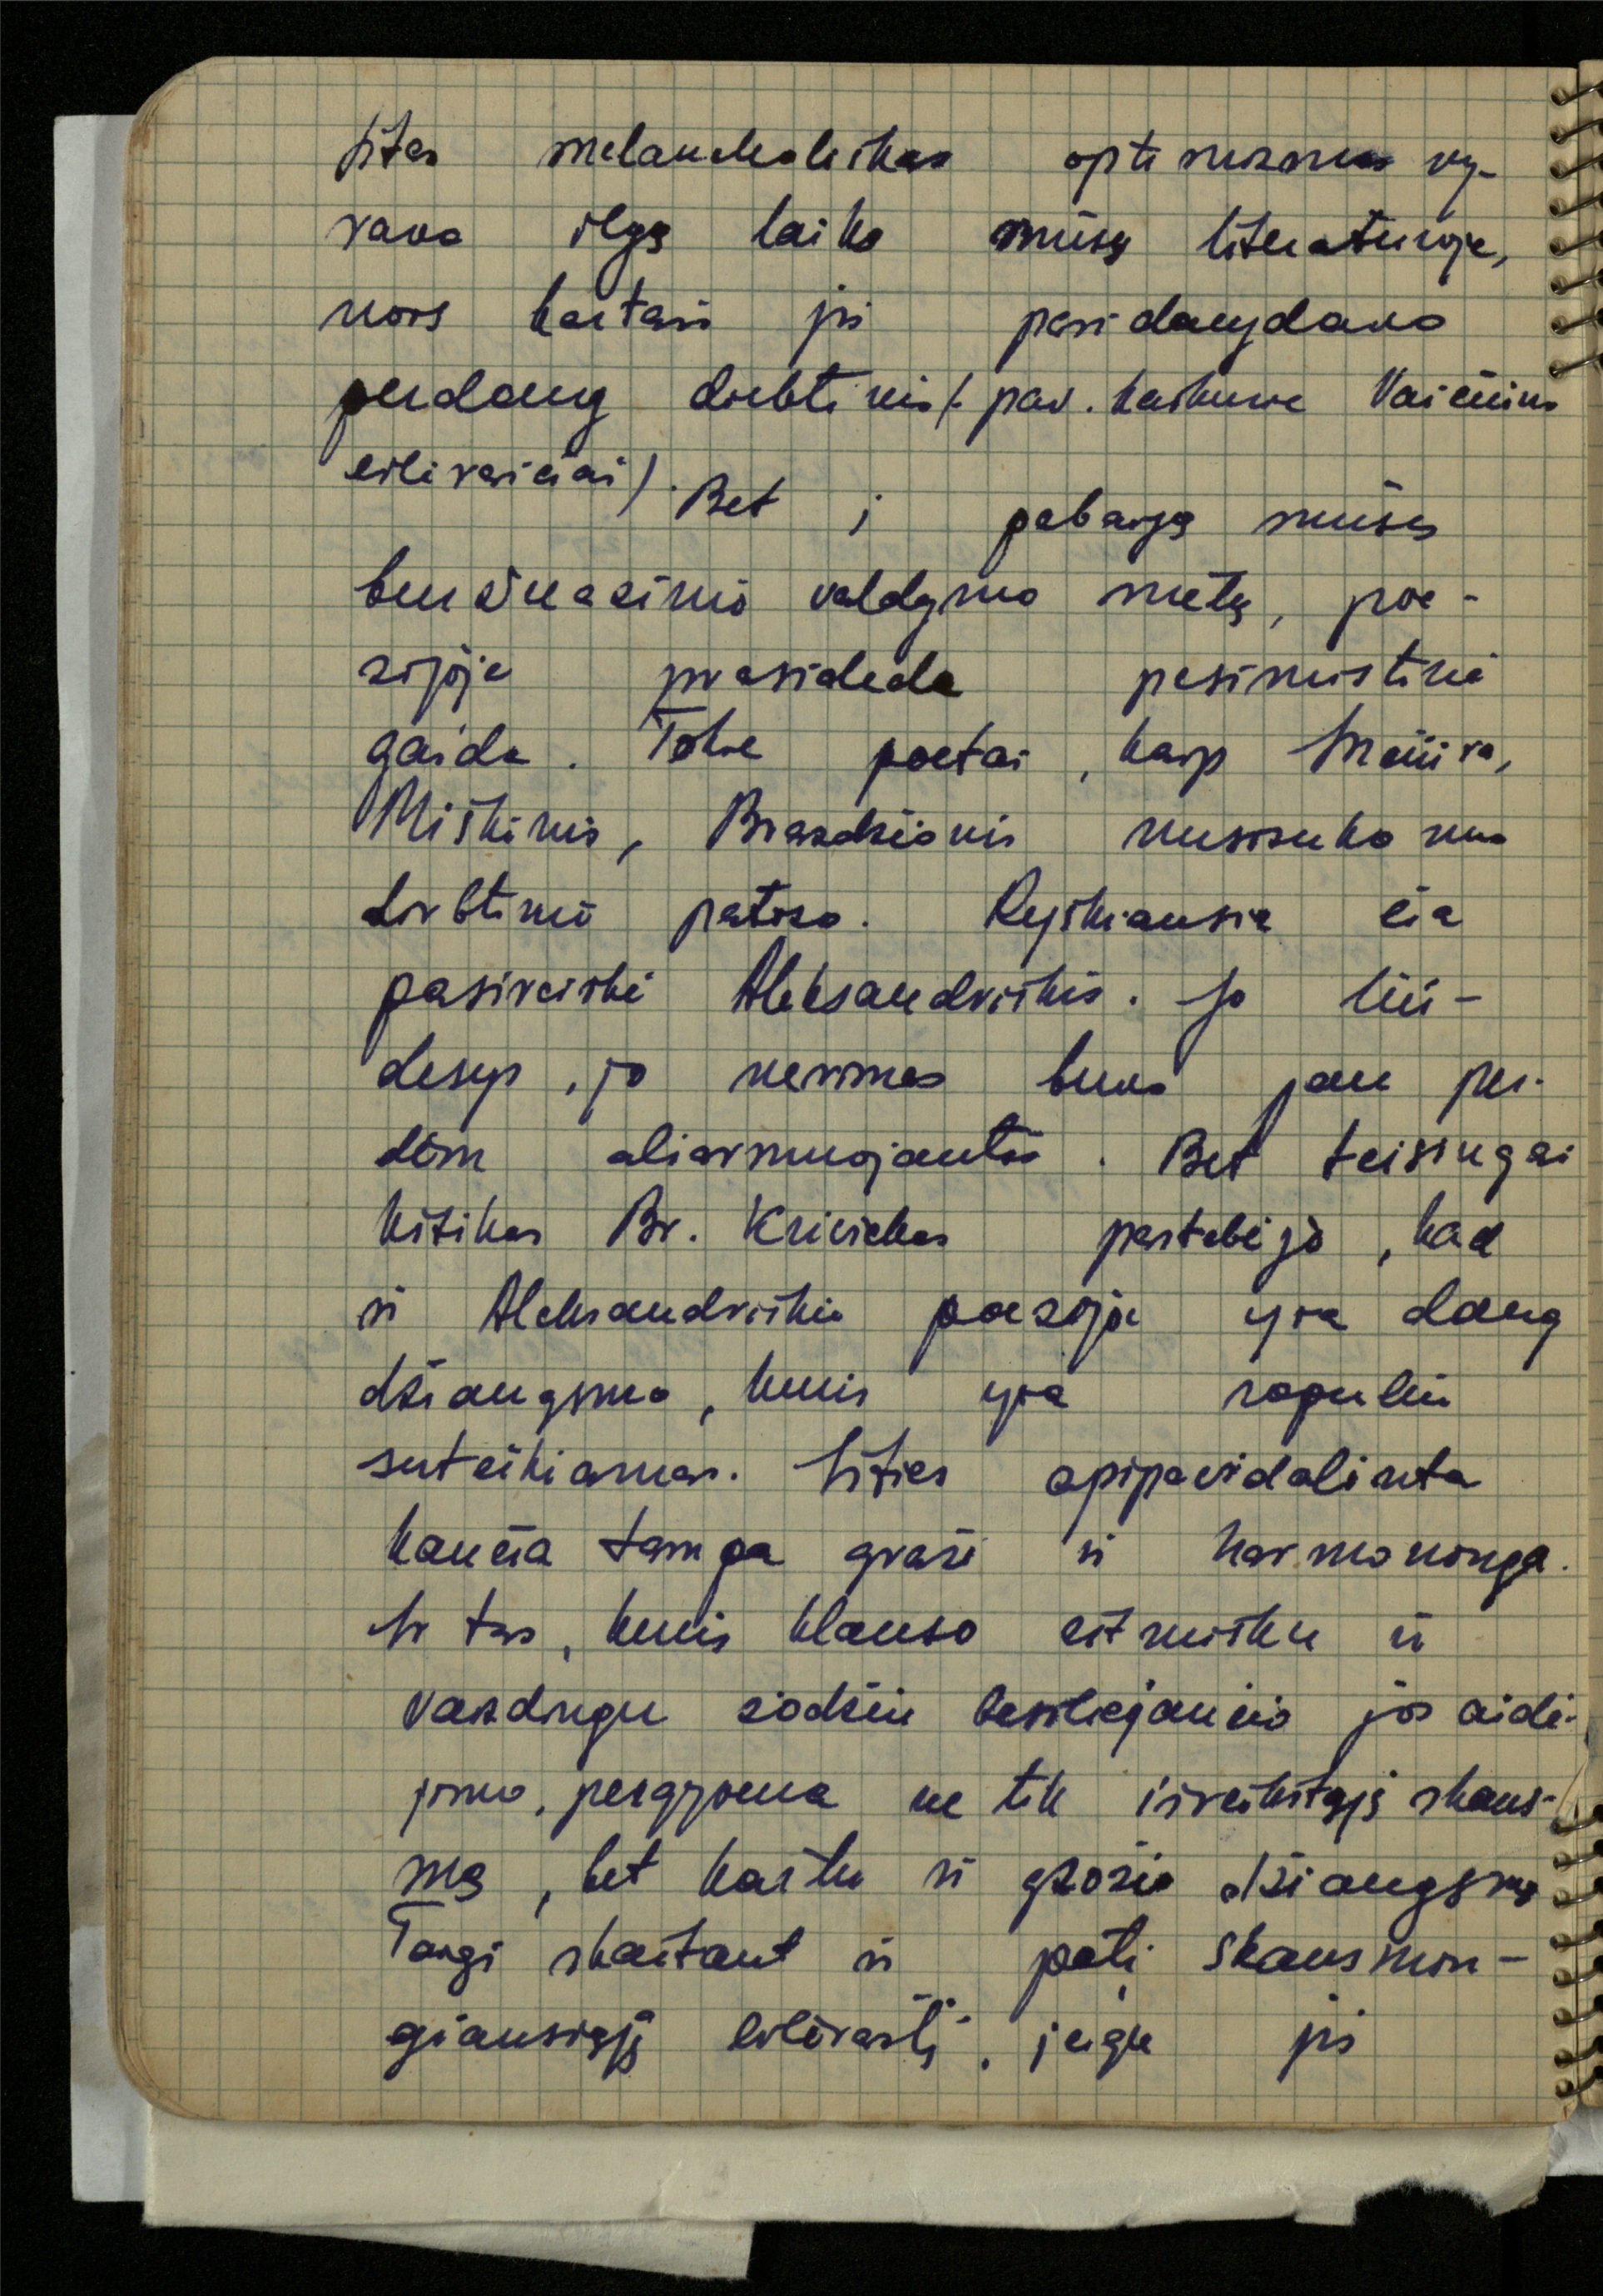 Šitas melancholiškas optimizmas vy-
ravo ilgą laiką mūsų literatūroje,
nors kartais jis pasidarydavo
perdaug dirbtinis (pav. kaikurie Vaičiūno
eilėraščiai). Bet į pabaigą mūsų
buržuazinio valdymo metų, poe-
zijoje prasideda pesimistinė
gaida. Tokie poetai, kaip Inčiūra,
Miškinis, Brazdžionis nusisuko nuo
dirbtinio patoso. Ryškiausia čia
pasireiškė Aleksandriškis. Jo liū-
desys, jo nerimas buvo jau per-
dėm aliarmuojantis. Bet teisingai
kritikas Br. Krivickas pastebėjo, kad
ir Aleksandriškio poezijoje yra daug
džiaugsmo, kuris yra sopuliu
suteikiamas. Šities apipavidalinta
kančia tampa graži ir harmoninga.
Ir tas, kuris klauso ritmišku ir
vaizdingu žodžiu besiliejančio jos aidė-
jimo, pergyvena ne tik išreikštąjį skaus-
mą, bet kartu ir grožio džiaugsmą
Taigi skaitant ir patį skausmin-
giausiąjį eilėraštį, jeigu jis